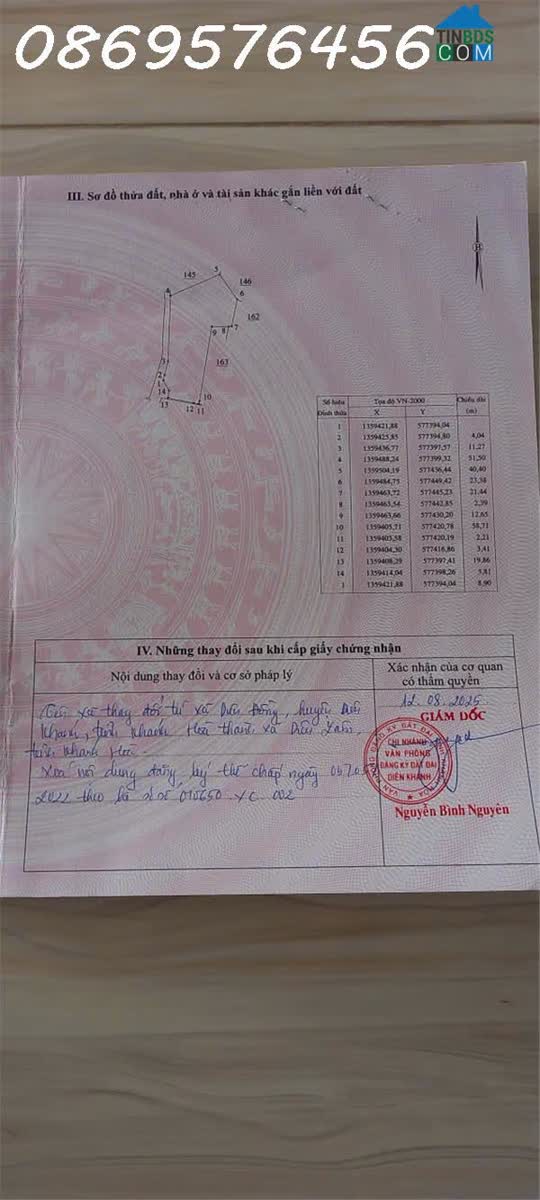 0869576456
TINBDS
COM
III. Sơ đồ thửa đất, nhà ở và tài sản khác gắn liền với đất
B
145
5
146
4
6
162
9 8 7
163
3
2
1
14
10
13 12 11
Số hiệu Đỉnh thửa Tọa độ VN-2000 Chiều dài (m)
X Y
1 1359421,88 577394,04
2 1359425,85 577394,80 4,04
3 1359436,77 577397,57 11,27
4 1359488,24 577399,32 51,50
5 1359504,19 577436,44 40,40
6 1359484,75 577449,42 23,38
7 1359463,72 577445,23 21,44
8 1359463,54 577442,85 2,39
9 1359463,66 577430,20 12,65
10 1359405,71 577420,78 58,71
11 1359403,58 577420,19 2,21
12 1359404,30 577416,86 3,41
13 1359408,29 577397,41 19,86
14 1359414,04 577398,26 5,81
1 1359421,88 577394,04 8,90
IV. Những thay đổi sau khi cấp giấy chứng nhận
Nội dung thay đổi và cơ sở pháp lý
Xác nhận của cơ quan
có thẩm quyền
xã thay đổi từ xã Diên Đồng, huyện Diên
Khánh, tỉnh Khánh Hoà thành xã Diên
tỉnh Khánh Hoà
Xoá nội dung đăng ký thế chấp ngày
2022 theo hồ sơ số 010650 . 002
12. 08. 2025
GIÁM ĐỐC
VĂN PHÒNG ĐĂNG KÝ ĐẤT ĐAI TỈNH KHÁNH HÒA
CHI NHÁNH
VĂN PHÒNG
ĐĂNG KÝ ĐẤT ĐAI
DIÊN KHÁNH
Nguyễn Bình Nguyên